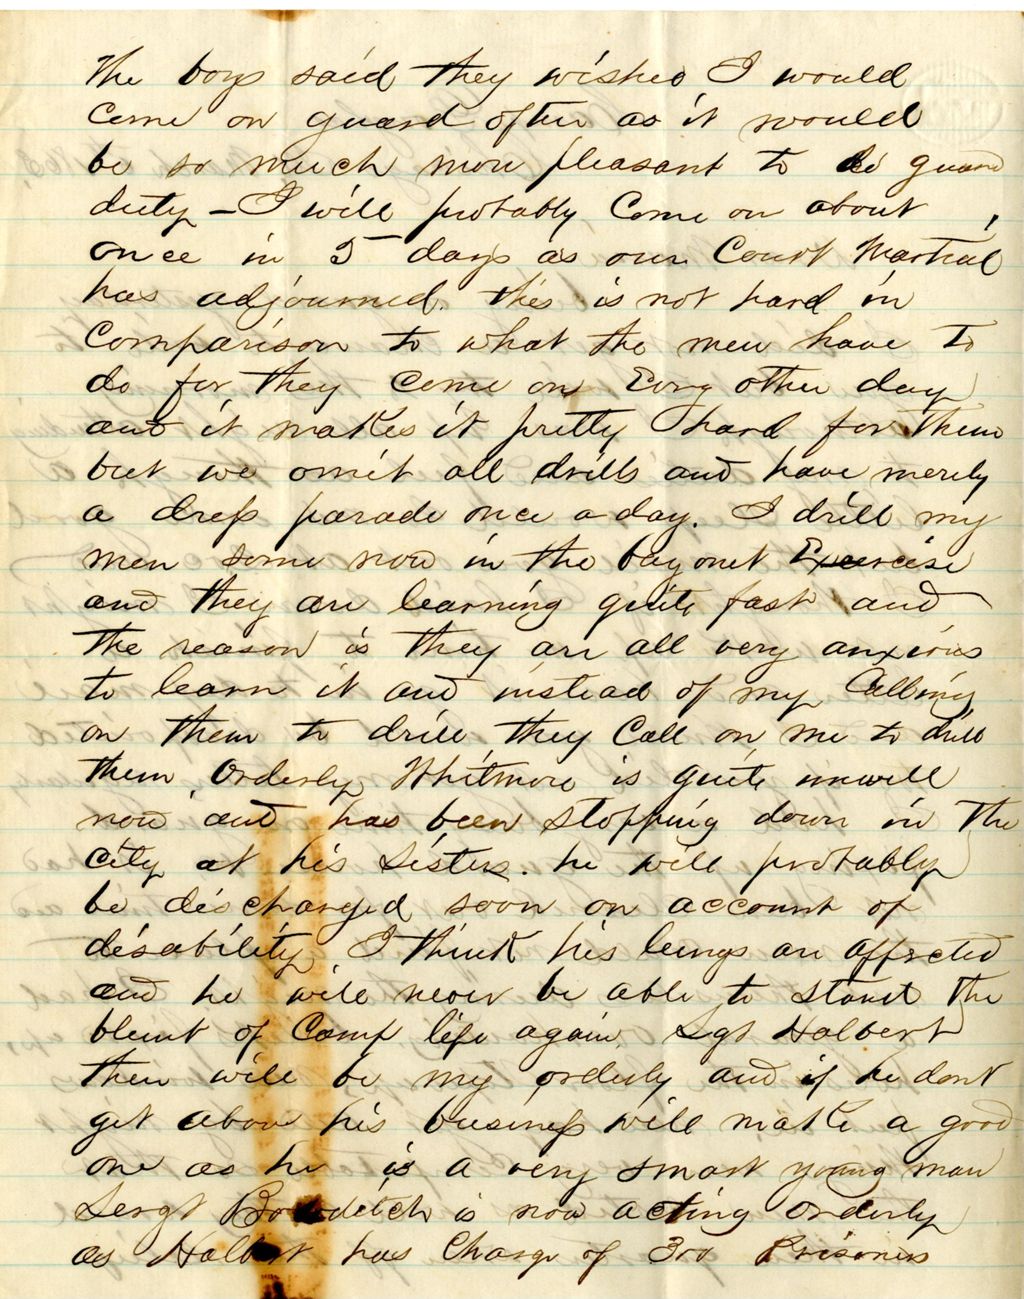 The boys said they wished I would
come on guard often as it would
be so much more pleasant to do guard
duty - I will probably come on about
once in 5 days as our Court Martial
has adjourned. this is not hard in
comparison to what the men have to
do for they come on Evry other day
and it makes it pretty hard for them
but we omit all drills and have merely
a dress parade once a day. I drill my
men some now in the bayonet Exercise
and they are learning quite fast and
the reason is they are all very anxious
to learn it and instead of my Calling
on them to drill they Call on me to drill
them Orderly Whitmore is quite unwell
now and has been stopping down in the
city at his sisters. he will probably
be discharged soon on account of
disability I think his lungs are affected
and he will never be able to stand the
blunt of Camp life again, Sgt Halbert
then will be my orderly and if he dont
get above his business will make a good
one as he is a very smart young man
Sergt Bowditch is now acting Orderly
as Halbert has Charge of 300 Prisoners